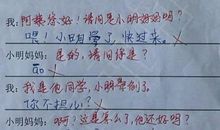 我:阿姨您好!请问是小明妈妈吗?
喂!小明同学了,快过来。
小明妈妈:是的,请问你是?
Go
我:我是他同学,小明晕倒了。
你不担心?
小明妈妈:啊?这是怎么了,他还好吗?